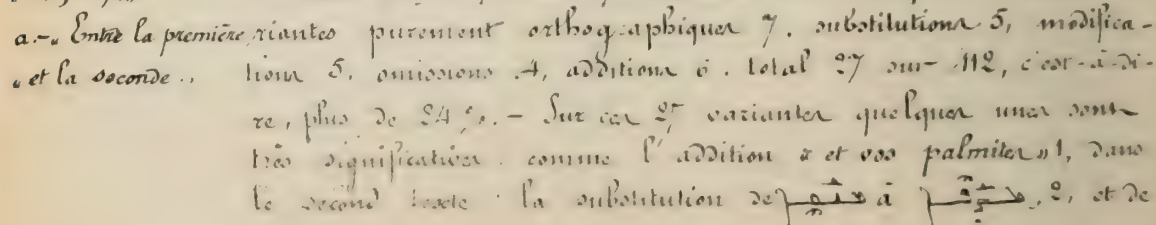 a.- « Entre la première riantes purement orthographiques 7, substitutions 5, modifica-
« et la seconde .. tions 5, omissions 4, additions 6. total 27 sur 112, c'est-à-di-
re, plus de 24 %. - Sur ces 27 variantes quelques unes sont
très significatives comme l'addition « et vos palmites » 1, dans
le second texte : la substitution de à , 2, et de